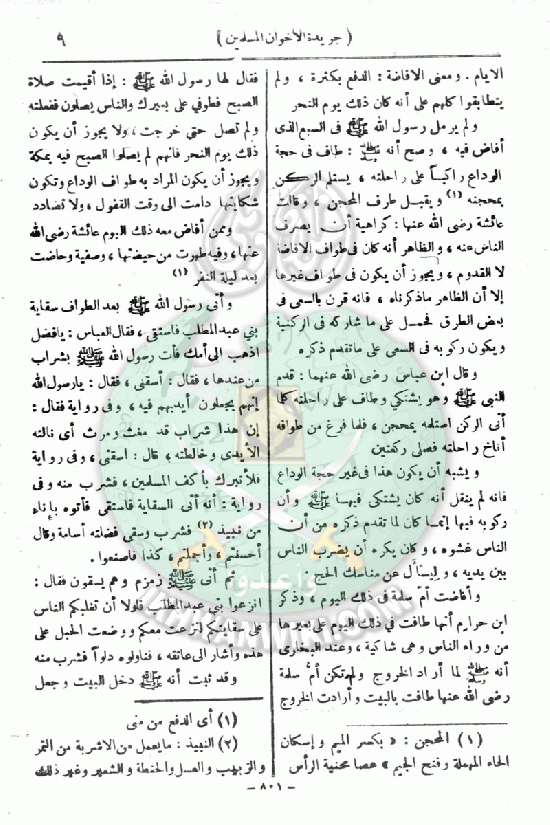 ( جريدة الاخوان المسلمين )
٩
الايام . ومعنى الافاضة : الدفع بكثرة ، ولم
يتطابقوا كلهم على أنه كان ذلك يوم النحر
ولم يرمل رسول الله ﷺ فى السبع الذى
أفاض فيه ، وصح أنه ﷺ : طاف فى حجة
الوداع راكباً على راحلته ، يستلم الركن
بمحجنه (١) ويقبل طرف المحجن ، وقالت
عائشة رضى الله عنها : كراهية أن يصرف
الناس عنه ، والظاهر أنه كان فى طواف الافاضة
لا القدوم ، ويجوز أن يكون فى طواف غيرها
إلا أن الظاهر ماذكرناه ، فانه قرن بالسعى فى
بعض الطرق فحمل على ما شاركه فى الركنية
ويكون ركوبه فى السعى على ماتقدم ذكره
وقال ابن عباس رضى الله عنهما : قدم
النبى ﷺ وهو يشتكى وطاف على راحلته كلما
أتى الركن استلمه بمحجن ، فلما فرغ من طوافه
أناخ راحلته فصلى ركعتين
ويشبه أن يكون هذا فى غير حجة الوداع
فانه لم ينقل أنه كان يشتكى فيها ﷺ وأن
ركوبه فيها إنما كان لما تقدم ذكره من أن
الناس غشوه ، وكان يكره أن يضرب الناس
بين يديه ، وليسأل عن مناسك الحج
وأفاضت أم سلمة فى ذلك اليوم ، وذكر
ابن حزام أنها طافت فى ذلك اليوم على بعيرها
من وراء الناس وهى شاكية ، وعند البخارى
أنه ﷺ لما أراد الخروج ولم تكن أم سلمة
رضى الله عنها طافت بالبيت وأرادت الخروج
(١) المحجن : « بكسر الميم وإسكان
الحاء المهملة وفتح الجيم » عصا محنية الرأس
فقال لها رسول الله ﷺ : إذا أقيمت صلاة
الصبح فطوفى على بعيرك والناس يصلون ففعلته
ولم تصل حتى خرجت ، ولا يجوز أن يكون
ذلك يوم النحر فانهم لم يصلوا الصبح فيه بمكة
ويجوز أن يكون المراد به طواف الوداع وتكون
شكايتها دامت الى وقت القفول ، ولا تضادد
وممن أفاض معه ذلك اليوم عائشة رضى الله
عنها ، وفيه طهرت من حيضتها ، وصفية وحاضت
بعد ليلة النفر (١)
وأتى رسول الله ﷺ بعد الطواف سقاية
بنى عبد المطلب فاستقى ، فقال العباس : يافضل
اذهب الى أمك فأت رسول الله ﷺ بشراب
من عندها ، فقال : أسقنى ، فقال : يارسول الله
إنهم يجعلون أيديهم فيه ، وفى رواية فقال :
إن هذا شراب قد مغث ومرث أى نالته
الأيدى وخالطته ، قال : اسقنى ، وفى رواية
فلأتبرك بأكف المسلمين ، فشرب منه وفى
رواية : أنه أتى السقاية فاستقى فأتوه بإناء
من نبيذ (٢) فشرب وسقى فضلته أسامة وقال
أحسنتم ، وأجملتم ، كذا فاصنعوا .
ثم أتى ﷺ زمزم وهم يسقون فقال :
انزعوا بنى عبد المطلب فلولا أن تغلبكم الناس
على سقايتكم لنزعت معكم ووضعت الحبل على
هذه وأشار الى عاتقه ، فناولوه دلواً فشرب منه
وقد ثبت أنه ﷺ دخل البيت وجعل
(١) أى الدفع من منى
(٢) النبيذ : مايعمل من الاشربة من التمر
والزبيب والعسل والحنطة والشعير وغير ذلك
- ٨٠١ -